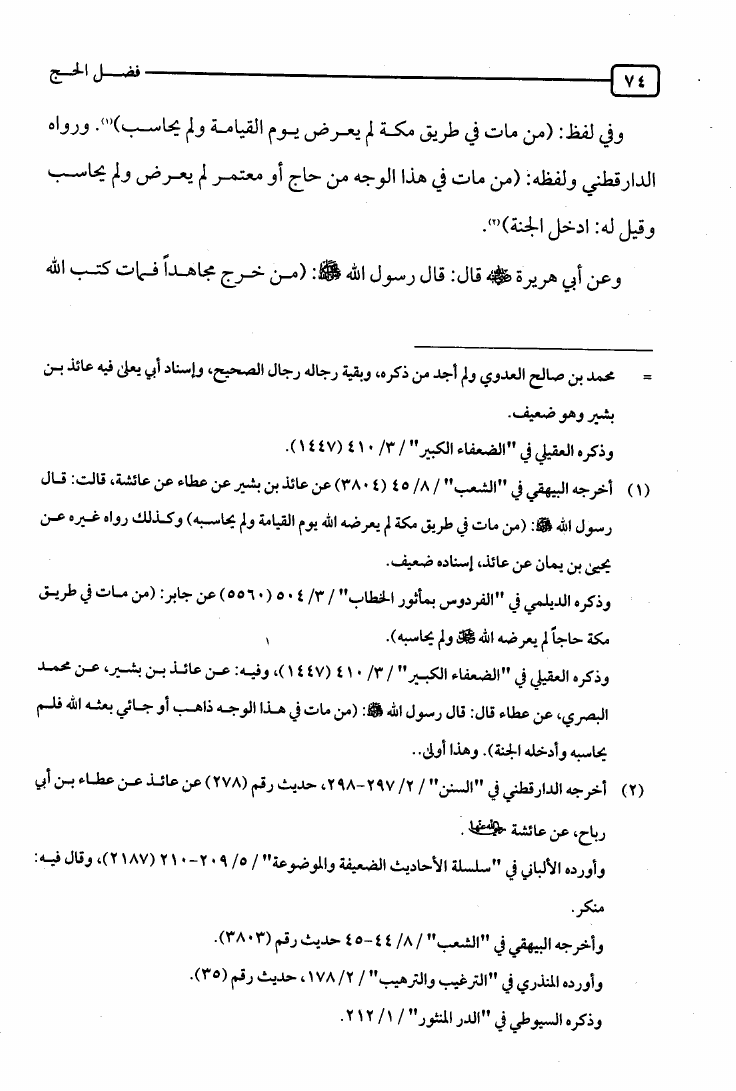 ٧٤ فضل الحج
وفي لفظ: (من مات في طريق مكة لم يعرض يوم القيامة ولم يحاسب)(١). ورواه
الدارقطني ولفظه: (من مات في هذا الوجه من حاج أو معتمر لم يعرض ولم يحاسب
وقيل له: ادخل الجنة)(٢).
وعن أبي هريرة رضي الله عنه قال: قال رسول الله ﷺ: (من خرج مجاهداً فمات كتب الله
= محمد بن صالح العدوي ولم أجد من ذكره، وبقية رجاله رجال الصحيح، وإسناد أبي يعلى فيه عائذ بن
بشير وهو ضعيف.
وذكره العقيلي في "الضعفاء الكبير" / ٣/ ٤١٠ (١٤٤٧).
(١) أخرجه البيهقي في "الشعب" / ٨/ ٤٥ (٣٨٠٤) عن عائذ بن بشير عن عطاء عن عائشة، قالت: قال
رسول الله ﷺ: (من مات في طريق مكة لم يعرضه الله يوم القيامة ولم يحاسبه) وكذلك رواه غيره عن
يحيى بن يمان عن عائذ، إسناده ضعيف.
وذكره الديلمي في "الفردوس بمأثور الخطاب" / ٣/ ٥٠٤ (٥٥٦٠) عن جابر: (من مات في طريق
مكة حاجاً لم يعرضه الله ولم يحاسبه).
وذكره العقيلي في "الضعفاء الكبير" / ٣/ ٤١٠ (١٤٤٧)، وفيه: عن عائذ بن بشير، عن محمد
البصري، عن عطاء قال: قال رسول الله ﷺ: (من مات في هذا الوجه ذاهب أو جائي بعثه الله فلم
يحاسبه وأدخله الجنة). وهذا أولى..
(٢) أخرجه الدارقطني في "السنن" / ٢/ ٢٩٧-٢٩٨، حديث رقم (٢٧٨) عن عائذ عن عطاء بن أبي
رباح، عن عائشة رضي الله عنها.
وأورده الألباني في "سلسلة الأحاديث الضعيفة والموضوعة" / ٥/ ٢٠٩-٢١٠ (٢١٨٧)، وقال فيه:
منكر.
وأخرجه البيهقي في "الشعب" / ٨/ ٤٤-٤٥ حديث رقم (٣٨٠٣).
وأورده المنذري في "الترغيب والترهيب" / ٢/ ١٧٨، حديث رقم (٣٥).
وذكره السيوطي في "الدر المنثور" / ١/ ٢١٢.